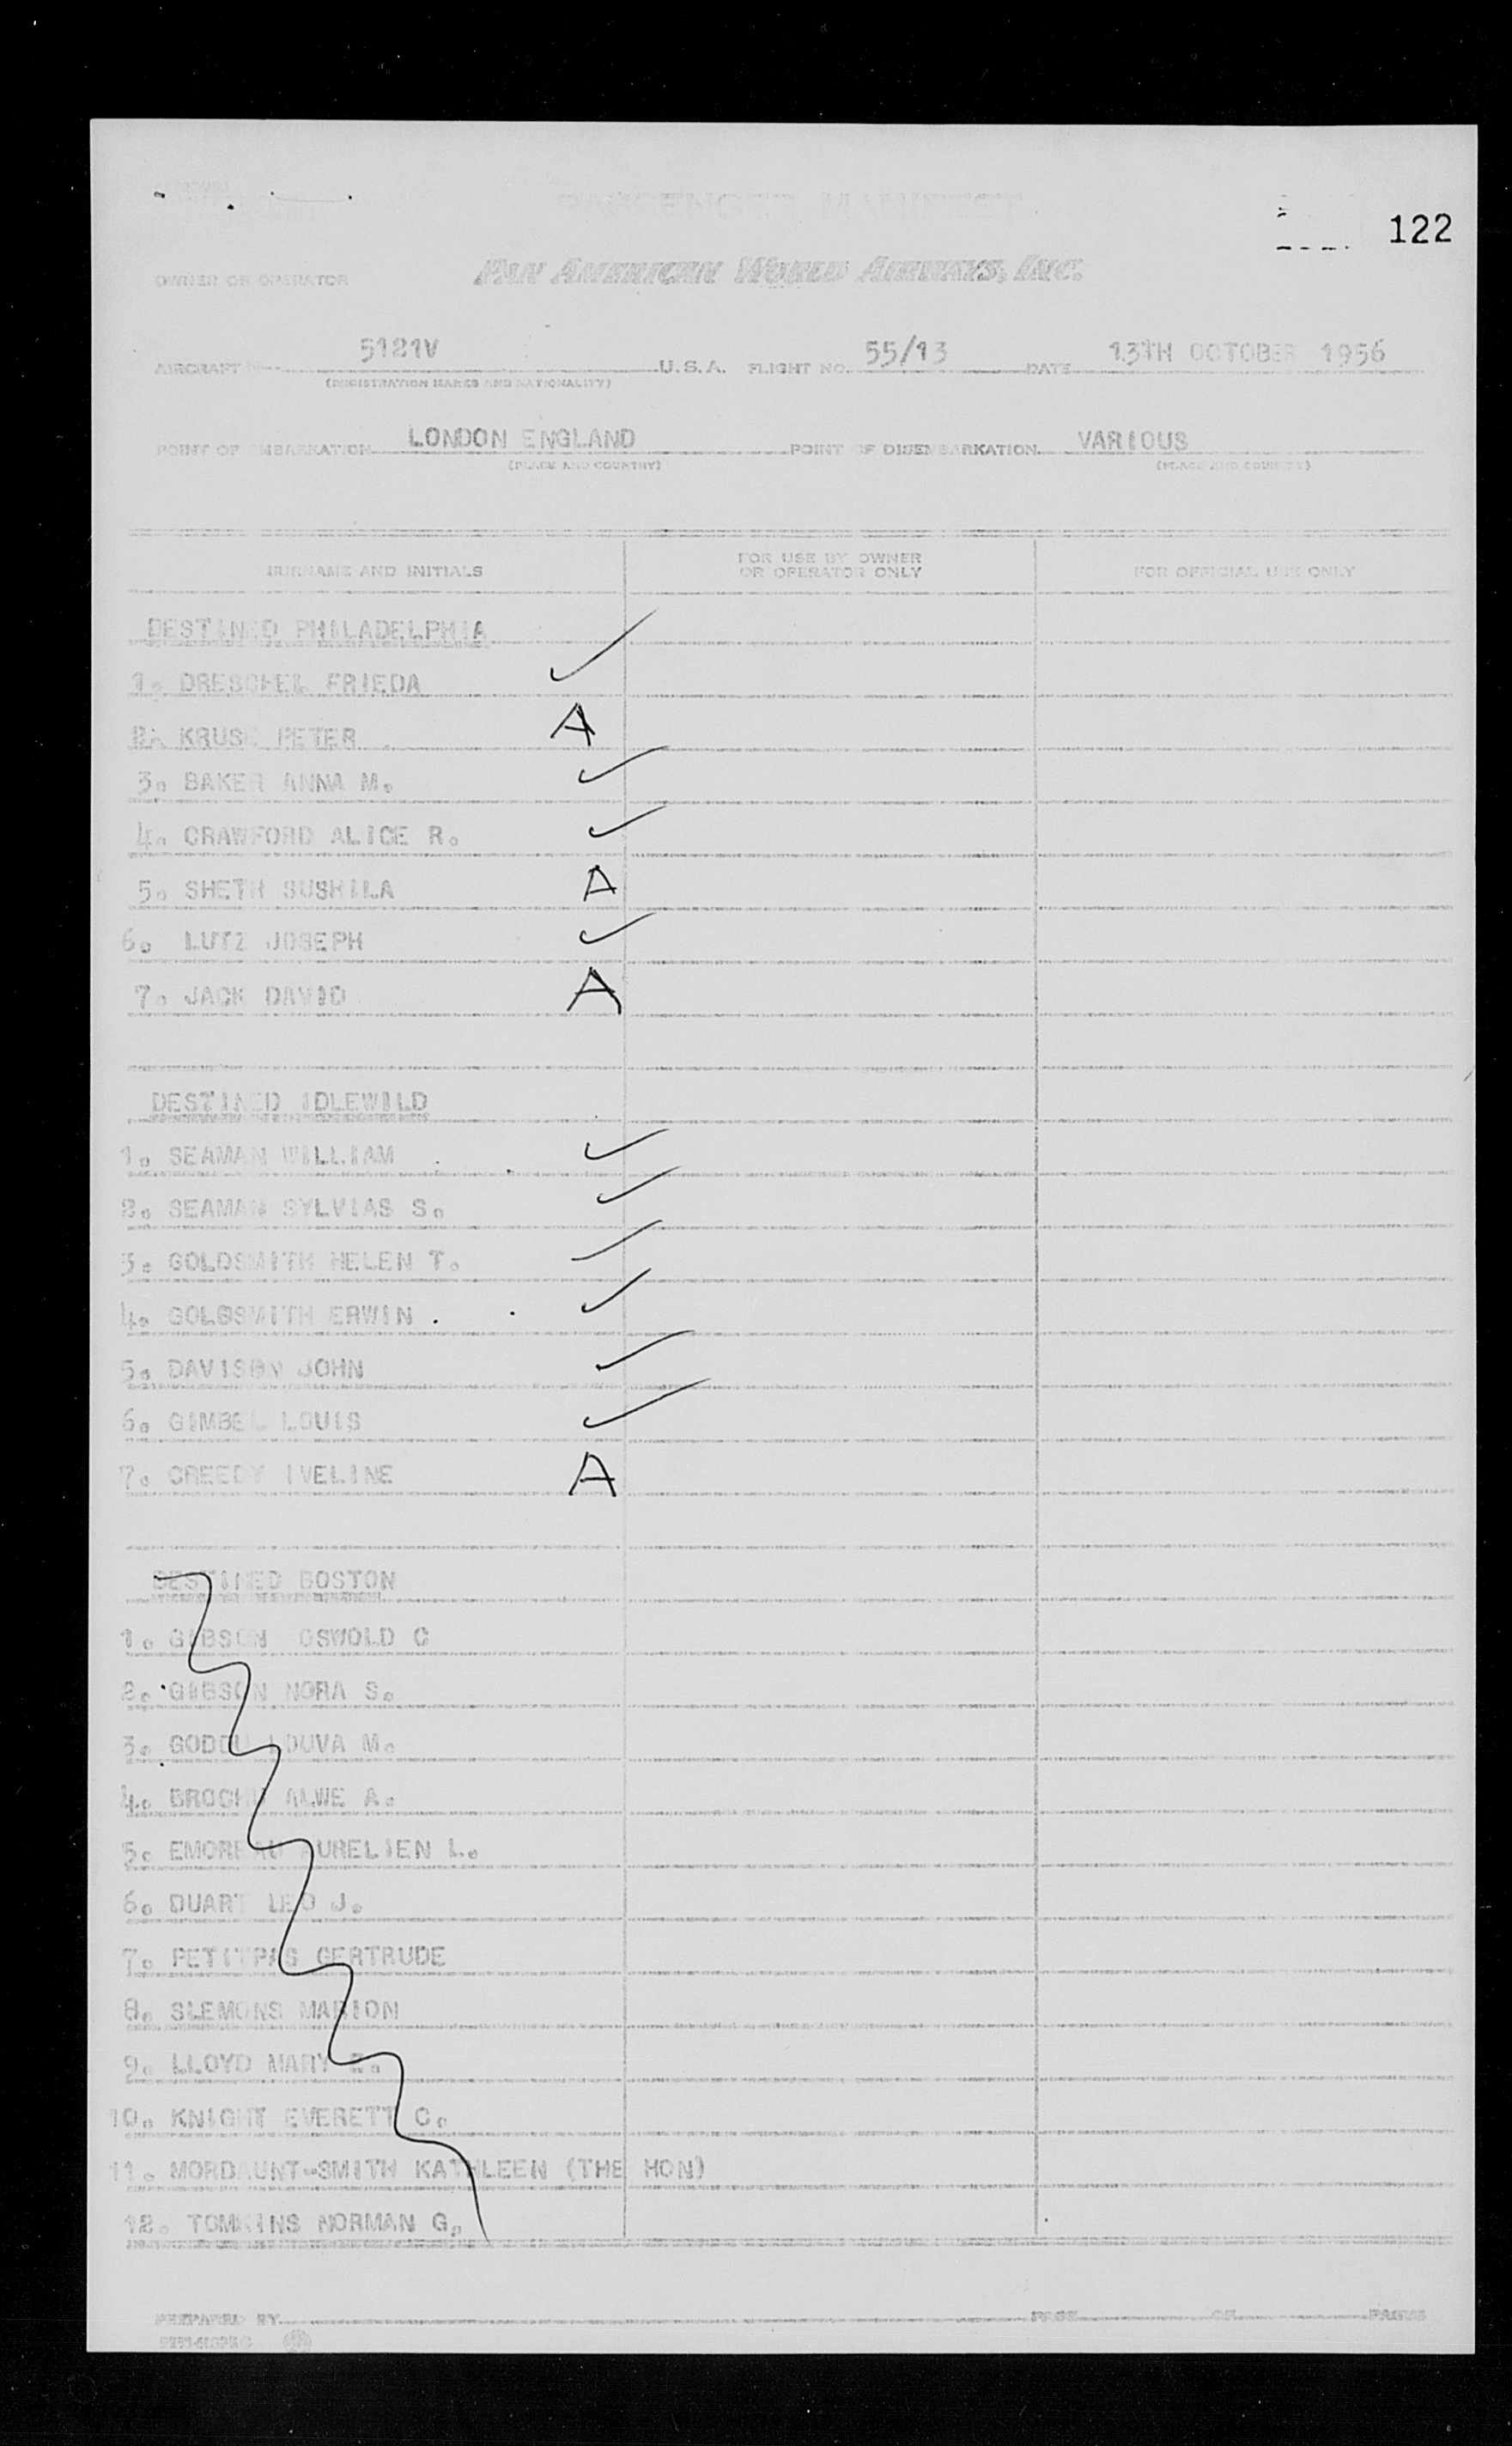 PASSENGER MANIFEST
122
OWNER OR OPERATOR PAN AMERICAN WORLD AIRWAYS, INC.
AIRCRAFT 5121V U.S.A. FLIGHT NO. 55/13 DATE 13TH OCTOBER 1956
(REGISTRATION MARKS AND NATIONALITY)
POINT OF EMBARKATION LONDON ENGLAND POINT OF DISEMBARKATION VARIOUS
(PLACE AND COUNTRY) (PLACE AND COUNTRY)
SURNAME AND INITIALS FOR USE BY OWNER OR OPERATOR ONLY FOR OFFICIAL USE ONLY
DESTINED PHILADELPHIA
1. DRESCHEL FRIEDA ✓
2. KRUSE PETER A
3. BAKER ANNA M. ✓
4. CRAWFORD ALICE R. ✓
5. SHETH SUSHILA A
6. LUTZ JOSEPH ✓
7. JACK DAVID A
DESTINED IDLEWILD
1. SEAMAN WILLIAM ✓
2. SEAMAN SYLVIAS S. ✓
3. GOLDSMITH HELEN T. ✓
4. GOLDSMITH ERWIN ✓
5. DAVISON JOHN ✓
6. GIMBEL LOUIS ✓
7. CREEDY IVELINE A
DESTINED BOSTON
1. GIBSON OSWOLD C
2. GIBSON NORA S.
3. GODDU LOUVA M.
4. BROCHU ALWE A.
5. EMOREAU AURELIEN L.
6. DUART LEO J.
7. PETITPAS GERTRUDE
8. SLEMONS MARION
9. LLOYD MARY
10. KNIGHT EVERETT C.
11. MORDAUNT-SMITH KATHLEEN (THE HON)
12. TOMKINS NORMAN G.
PREPARED BY PAGE OF PAGES